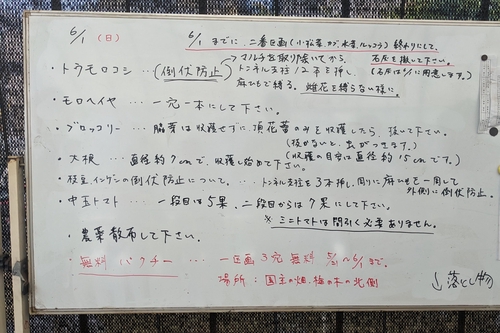 6/1 (日)
6/1 までに、二番区画(小松菜、カブ、水菜、ルッコラ) 終わりにして、
石灰を撒いて下さい。
(石灰は6/1に用意します。)
・トウモロコシ … (倒伏防止) → マルチを取り除いてから、
トンネル支柱12本を押し、
麻ひもで縛る。雌花を縛らない様に。
・モロヘイヤ … 一穴一本にして下さい。
・ブロッコリー … 脇芽は収穫せずに、頂花蕾のみを収穫したら、抜いて下さい。
(抜かないと、虫がつきます。)
(収穫の目安は直径約15cmです。)
・大根 … 直径約7cmで、収穫し始めて下さい。
・枝豆、インゲンの倒伏防止について、… トンネル支柱を3本挿し、周りに麻ひもを一周して
外側に倒伏防止。
・中玉トマト … 一段目は5果、二段目からは7果にして下さい。
※ ミニトマトは間引く必要ありません。
・農薬散布して下さい。
・無料 パクチー … 一区画3穴 無料 5/31〜6/1まで。
場所: 国立の畑、梅の木の北側
↓落とし物